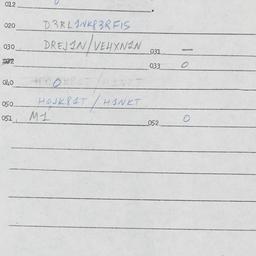 012
020 D3RL1NK83RFIS
030 DREJ1N/VEHXN1N 031 —
033 0
040 0
050 HOJK81T/H1NKT
051 M1 052 0